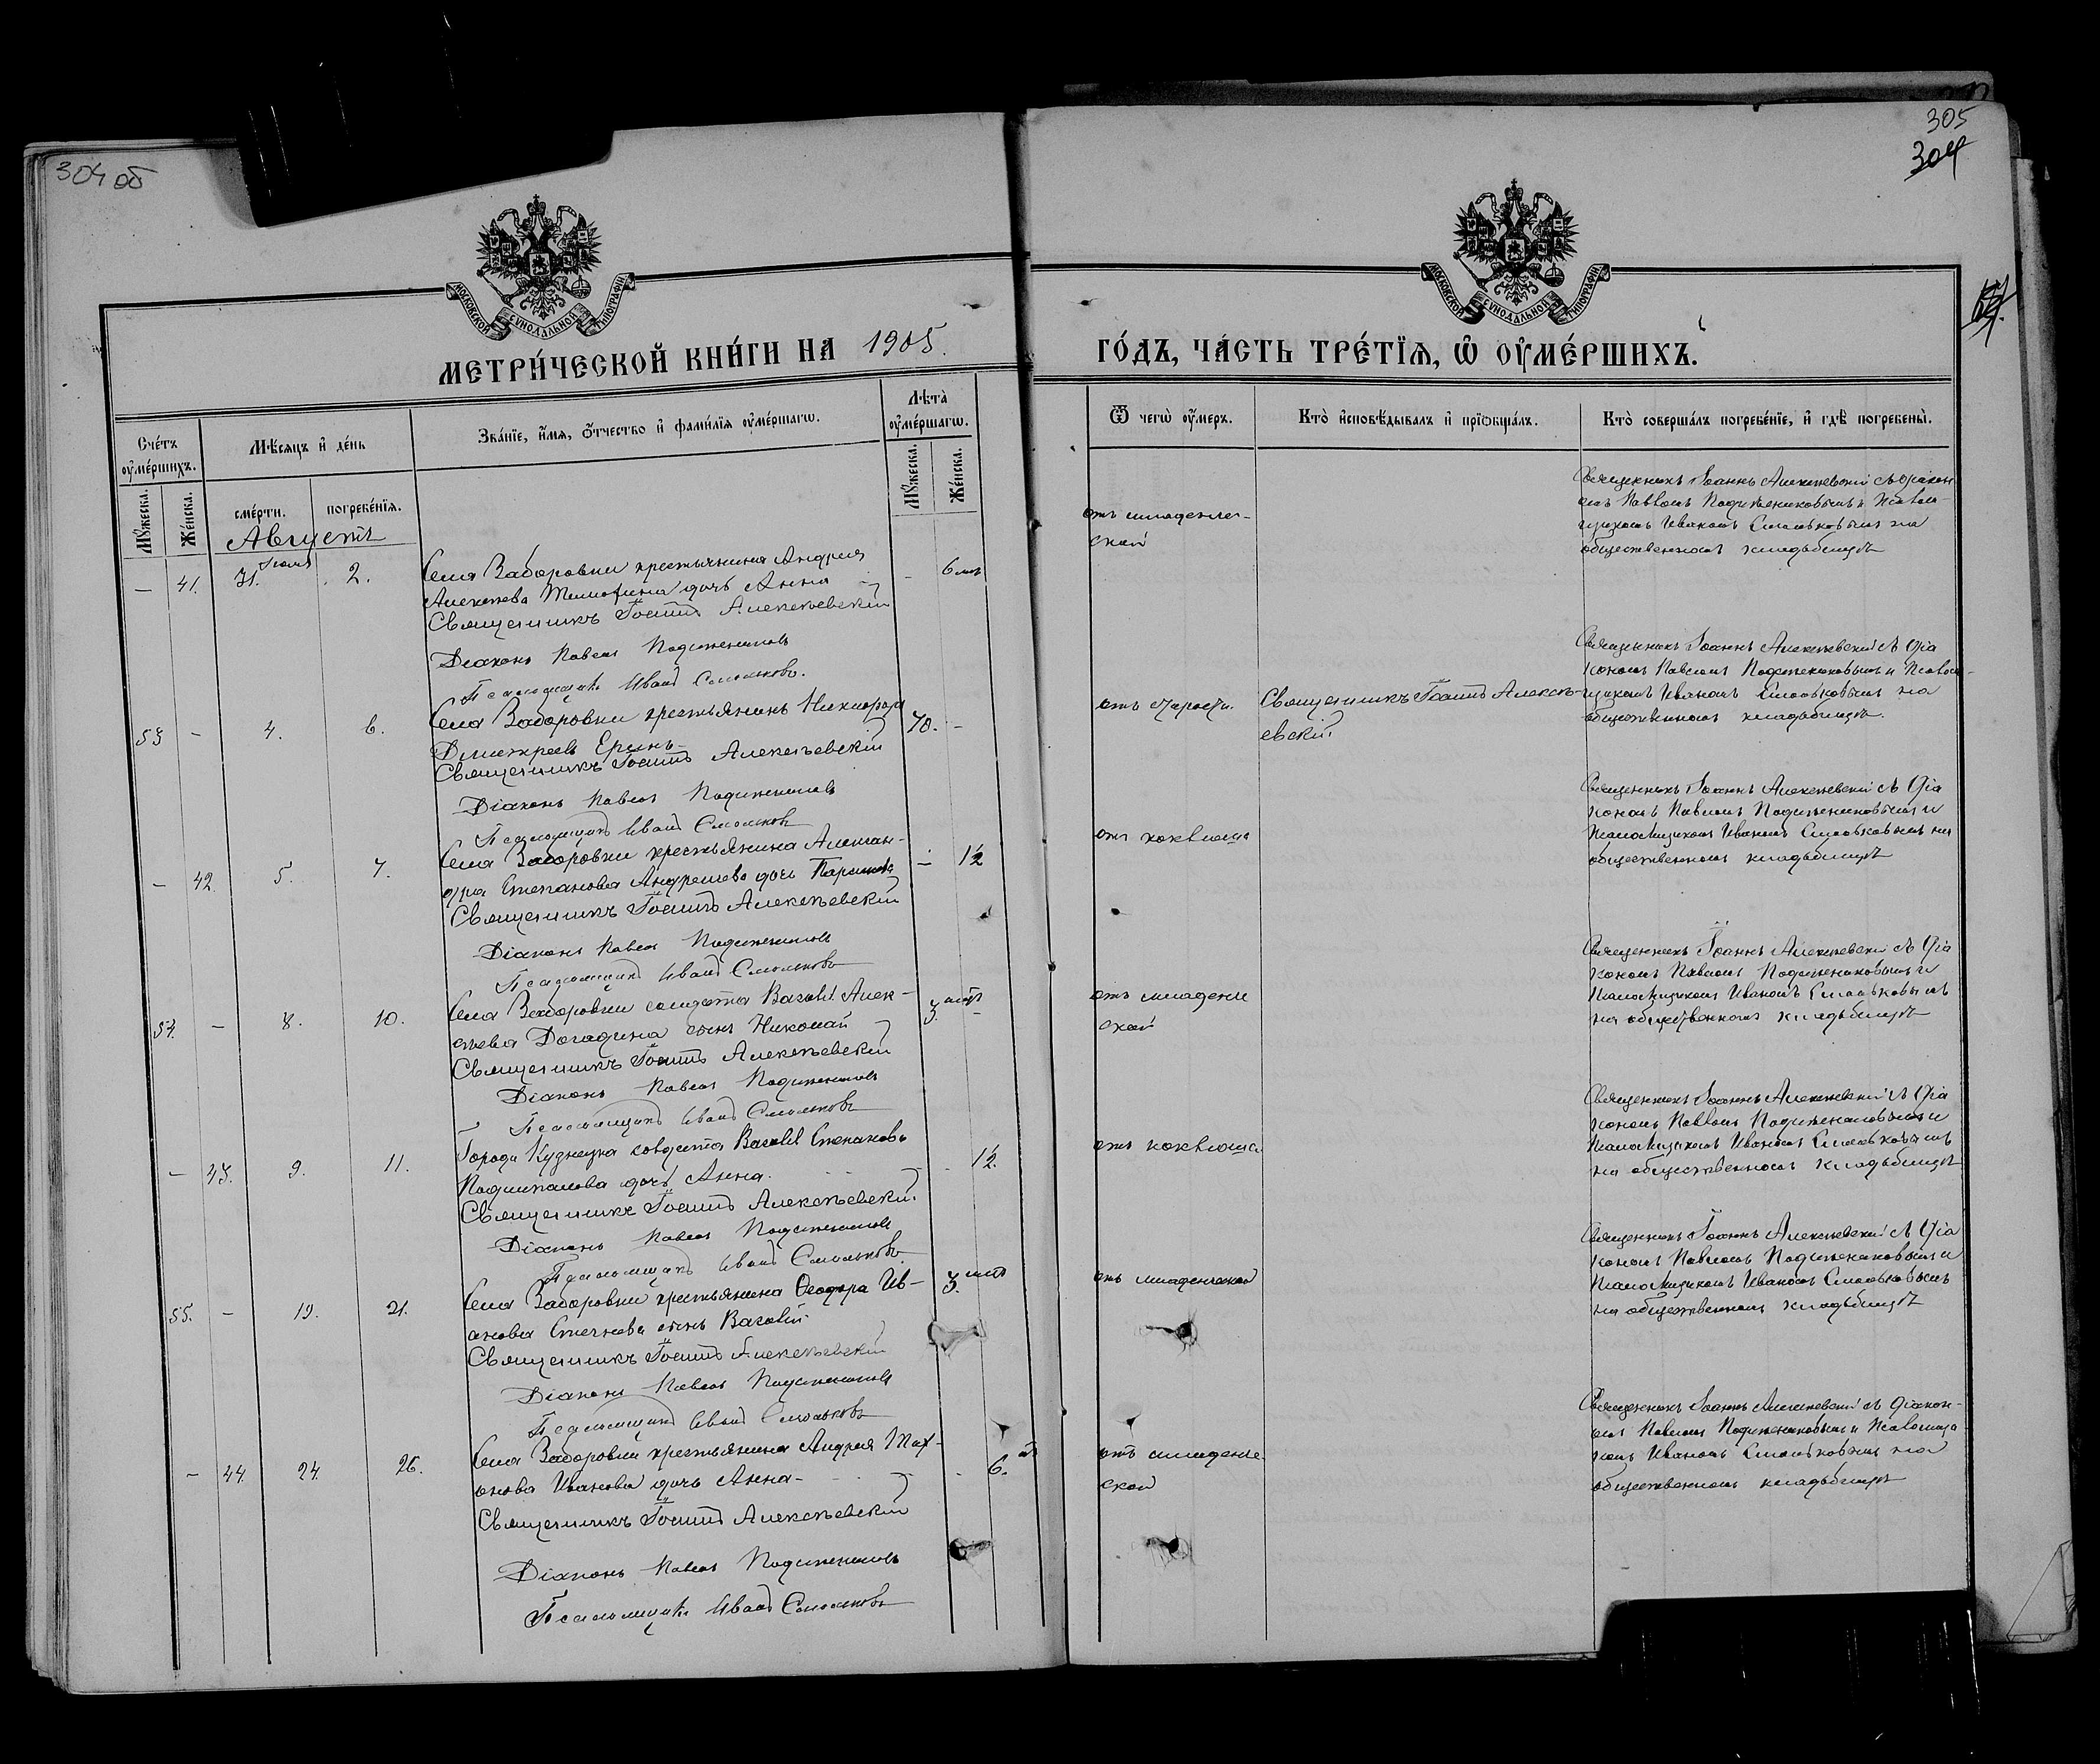 304 об
305
304
МОСКОВСКОЙ СѴНОДАЛЬНОЙ ТИПОГРАФІИ
МОСКОВСКОЙ СѴНОДАЛЬНОЙ ТИПОГРАФІИ
МЕТРИ́ЧЕСКОЙ КНИ́ГИ НА 1905.
ГО́ДЪ, ЧА́СТЬ ТРЕ́ТЇѦ, Ѡ҆ ОУ҆МЕ́РШИХЪ.
Сче́тъ оу҆ме́ршихъ.
Мѣ́сѧцъ и҆ де́нь
Зва́нїе, и҆́мѧ, ѻ҆́тчество и҆ фами́лїѧ оу҆ме́ршагѡ.
Лѣ́та оу҆ме́ршагѡ.
Мꙋ́жеска.
Же́нска.
сме́рти.
погребе́нїѧ.
Мꙋ́жеска.
Же́нска.
Ѿ чегѡ̀ оу҆́меръ.
Кто̀ и҆сповѣ́дывалъ и҆ прїѻбща́лъ.
Кто̀ соверша́лъ погребе́нїе, и҆ гдѣ̀ погребены̀.
Августъ
— 41. 31. Іюля 2.
Села Заборовки крестьянина Андрея
Алексѣева дочь Анна
- 6 лѣт
Священникъ Іоаннъ Алексѣевскій
Діаконъ Павелъ
Псаломщикъ Иванъ Смольковъ.
отъ младенче-
ской
Священникъ Іоаннъ Алексѣевскій съ діакон
омъ Павломъ и Псалом-
щикомъ Иваномъ Смольковымъ на
общественномъ кладбищѣ
53 — 4. 6.
Села Заборовки крестьянинъ Никифоръ
Дмитріевъ
70. -
Священникъ Іоаннъ Алексѣевскій
Діаконъ Павелъ
Псаломщикъ Иванъ Смольковъ
отъ старости.
Священникъ Іоаннъ Алексѣ-
евскій
Священникъ Іоаннъ Алексѣевскій съ Діа
кономъ Павломъ и Псалом-
щикомъ Иваномъ Смольковымъ на
общественномъ кладбищѣ.
— 42. 5. 7.
Села Заборовки крестьянина Алексан-
дра Степанова дочь
— 1½
Священникъ Іоаннъ Алексѣевскій
Діаконъ Павелъ
Псаломщикъ Иванъ Смольковъ
отъ коклюша
Священникъ Іоаннъ Алексѣевскій съ Діа
кономъ Павломъ и
Псаломщикомъ Иваномъ Смольковымъ на
общественномъ кладбищѣ
54. — 8. 10.
Села Заборовки солдата Василія Алек-
сѣева Догадина сынъ Николай
3. -
Священникъ Іоаннъ Алексѣевскій
Діаконъ Павелъ
Псаломщикъ Иванъ Смольковъ
отъ младенче
ской
Священникъ Іоаннъ Алексѣевскій съ Діа
кономъ Павломъ и
Псаломщикомъ Иваномъ Смольковымъ
на общественномъ кладбищѣ
— 43. 9. 11.
Города Кузнецка солдата Василія Степанова
дочь Анна.
- 1½.
Священникъ Іоаннъ Алексѣевскій
Діаконъ Павелъ
Псаломщикъ Иванъ Смольковъ
отъ коклюша
Священникъ Іоаннъ Алексѣевскій съ Діа
кономъ Павломъ и
Псаломщикомъ Иваномъ Смольковымъ
на общественномъ кладбищѣ
55. — 19. 21.
Села Заборовки крестьянина Ѳеодора Ив-
анова сынъ Василій
3.
Священникъ Іоаннъ Алексѣевскій
Діаконъ Павелъ
Псаломщикъ Иванъ Смольковъ
отъ младенческой
Священникъ Іоаннъ Алексѣевскій съ Діа
кономъ Павломъ и
Псаломщикомъ Иваномъ Смольковымъ
на общественномъ кладбищѣ
— 44. 24. 26.
Села Заборовки крестьянина Андрея
Иванова дочь Анна
- 6.
Священникъ Іоаннъ Алексѣевскій
Діаконъ Павелъ
Псаломщикъ Иванъ Смольковъ
отъ младенче
ской
Священникъ Іоаннъ Алексѣевскій съ діакон-
омъ Павломъ и Псаломщи-
комъ Иваномъ Смольковымъ на
общественномъ кладбищѣ